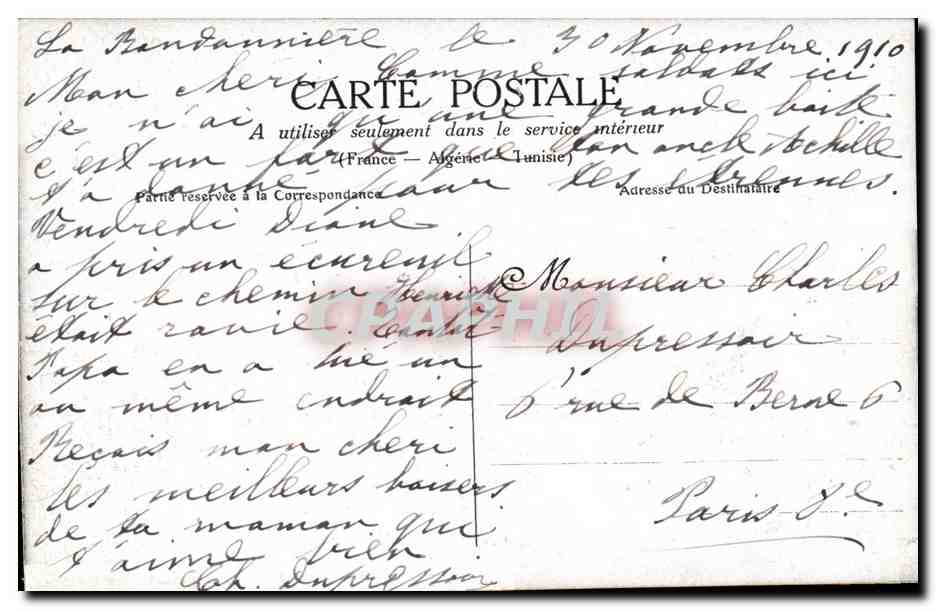 La Bondonnière le 30 Novembre 1910
Mon chéri, Comme soldats ici
CARTE POSTALE
je n'ai qu'une grande boite
A utiliser seulement dans le service intérieur
c'est un fort que ton oncle Achille
(France — Algérie — Tunisie)
t'a donné pour tes étrennes.
Partie réservée à la Correspondance
Adresse du Destinataire
Vendredi Diane
a pris un écureuil
sur le chemin
était ravie.
Papa en a tué un
au même endroit
Reçois mon cheri
les meilleurs baisers
de ta maman qui
t'aime bien
Ch. Dupressoir
CPAPHIL
Monsieur Charles
Dupressoir
6 rue de Berne 6
Paris 8e